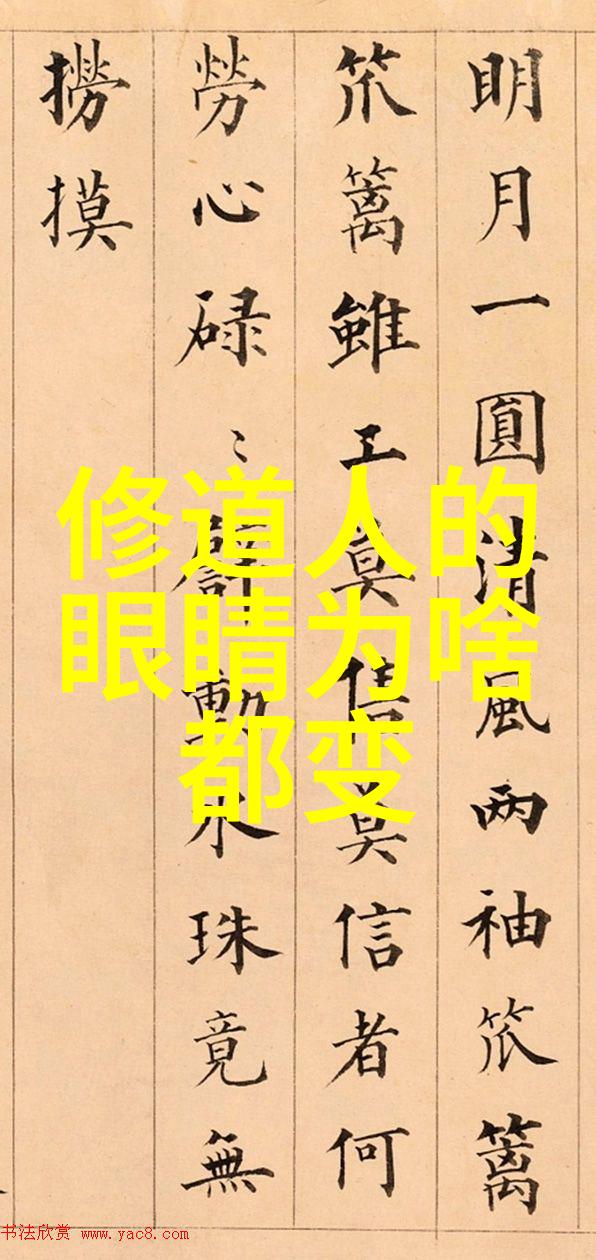 明月一圓清風两袖笊籬
笊籬雖工莫信莫信者何
勞心碌〻動水珠竟無
撈摸
修道人的
眼睛为啥
都变
书法欣赏 www.yac8.com